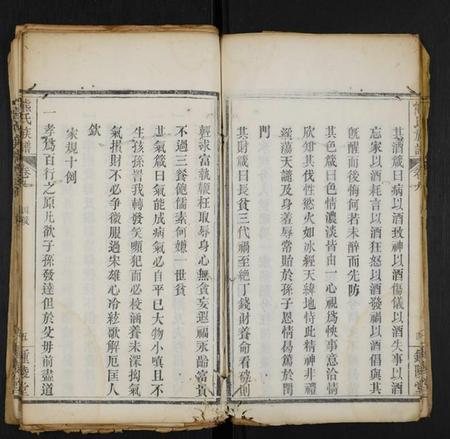 其酒箴曰病以酒致神以酒傷儀以酒失事以酒
忘家以酒耗言以酒狂怒以酒發禍以酒倡與其
既醒而後悔何若未醉而先防
其色箴曰色情濃淡皆由一心視為快事意洽情
欣知其伐性慾火如冰經天緯地恃此精神非禮
婬蕩天譴及身羞辱常貽於孫子恩情曷篤於閨
門
其財箴曰長貧三代福至絶丁錢財養命看破則
輕求富執鞭枉取辱身心無貪妄遐福永齡富貴
不過三餐飽儒素何嫌一世貧
其氣箴曰氣能成病氣必自平巳大物小嗔且不
生孩孫詈我轉發笑顏犯而必校涵養未深拘氣
氣損財不必爭徵服過宋雄心冷絃歌解厄匡人
欽
家規十例
一孝為百行之原凡欲子孫發達但於父母前盡道
熊氏族譜
卷
訓箴
五
鍾陵堂